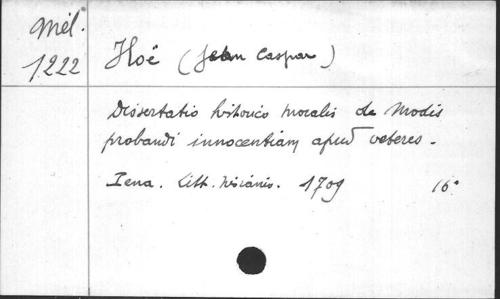 Mél.
1222
Hoë (Jean Caspar)
Dissertatio historico moralis de Modis
probandi innocentiam apud veteres.
Iena. Litt. 1709 16°